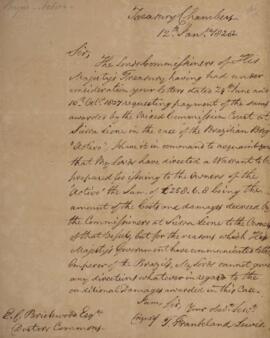 Treasury Chambers
12th Jany 1828
Sir,
The Lords Commissioners of His
Majesty's Treasury having had under
consideration your Letters dated 24 June and
10 Octr 1827 requesting payment of the sums
awarded by the Mixed Commission Court at
Sierra Leone in the case of the Brazilian Brig
"Activo", I have it in command to acquaint you
that My Lords have directed a Warrant to be
prepared for issuing to the Owners of the
"Activo" the Sum of £258.6.8 being the
amount of the Costs and damages decreed by
the Commissioners at Sierra Leone to the Owners
of that Vessel, but for the reasons which His
Majesty's Government have communicated to the
Emperor of the Brazils, My Lords cannot give
any directions whatever in regard to the
conditional Damages awarded in this Case.
I am, Sir,
Your
J Frankland Lewis
E. C. Brickwood Esqr
Doctors Commons.